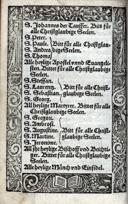 S. Johannes der Tauffer. Bitt für
alle Christglaubige Seelen.
S. Peter.
S. Paule. Bitt für alle Christglau-
S. Andrea. bige Seelen.
S. Thoma.
Alle heylige Apostel und Evangeli-
sten. Bittet für alle Christglaubige
Seelen.
S. Steffan.
S. Laurentz. Bitt für alle Christ-
S. Sebastian. glaubige Seelen.
S. Georg.
Alle heylige Martyrer. Bittet für alle
Christglaubige Seelen.
S. Gregori.
S. Ambrosi.
S. Augustine. Bitt für alle Christ-
S. Martine. glaubige Seelen.
S. Jeronime.
Alle heylige Bischoff und Beichti-
ger. Bittet für alle Christglaubige
Seelen.
Alle heylige Münch und Einsidel.